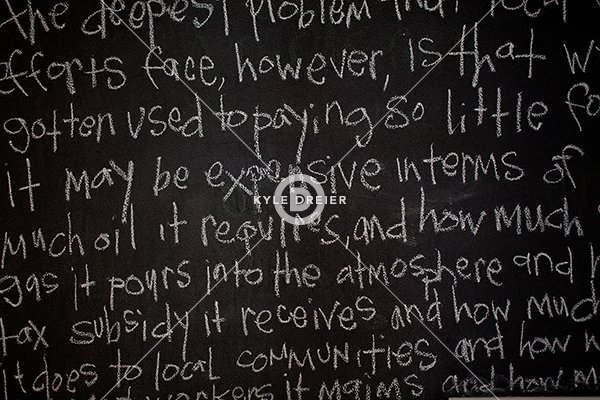 the deepest problem that local
efforts face, however, is that w
gotten used to paying so little fo
it may be expensive in terms of
KYLE DREIER
much oil it requires, and how much o
gas it pours into the atmosphere and h
tax subsidy it receives and how much
it does to local communities and how m
workers it maims and how m